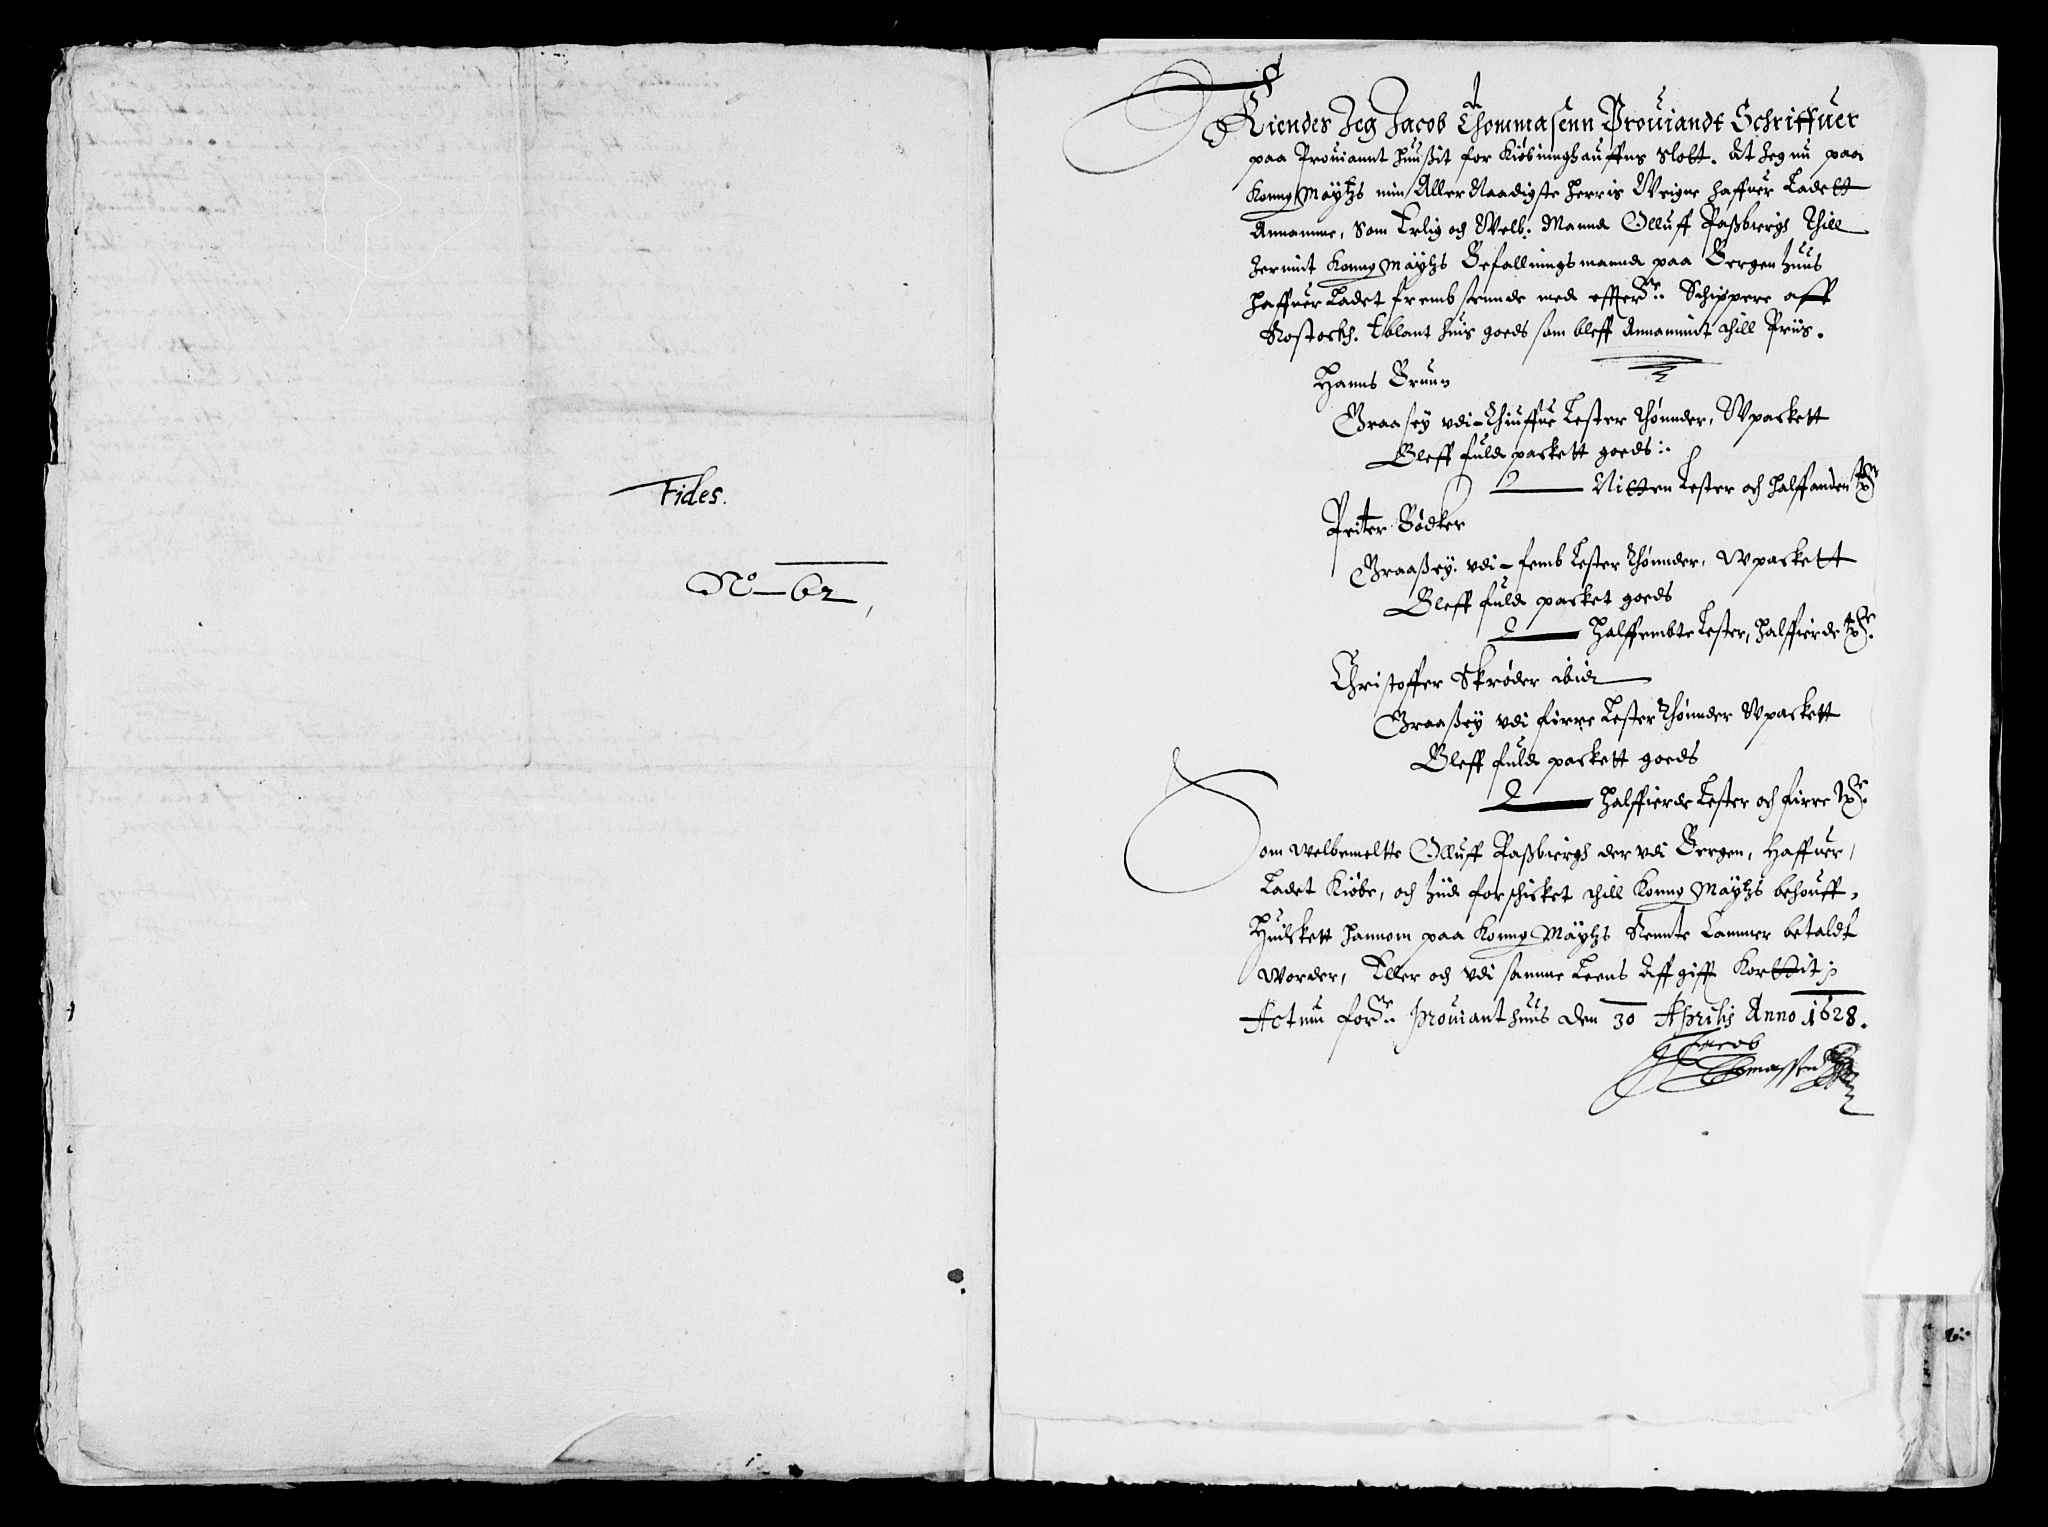 Fides.
No 62,
Kiendes Jeg Jacob Thommasenn Prouiandt Schriffuer
paa Prouiannt huußit for Kiøbinnghauffns Slott. At Jeg nu paa
Konng Maÿtz min Aller Naadigste Herris Weigne haffuer Ladett
Annamme, Som Erlig och Welb. Mannd Olluff Paßbiergh Thill
Jermit Konng Maÿtz Befallningsmannd paa Bergenhuus
haffuer Ladet fremb sennde med effterne: Schippere aff
Rostockh. Eblant huis goeds som bleff Annammit thill Priis.
Hanns Bruun
Graasey vdi Thiuffue Lester Thønnder, Wpackett
Bleff fuld packett goeds:
Nitten Lester och halffanden tr
Peiter Bødker
Graaßey. vdi femb Lester Thønnder, wpackett
Bleff fuld packet goeds
Halffembte Lester, halffierde tr.
Christoffer Skrøder ibid
Graaßey vdi firre Lester Thønnder Wpackett
Bleff fuld packett goeds
Halffierde Lester och firre tr.
Som welbemeltte Olluff Paßbiergh der vdi Bergen, Haffuer
Ladet Kiøbe, och hiid forschicket thill Konng Maÿtz behouff,
Huilckett hannom paa Konng Maÿtz Rennte Cammer betaldt
worder, Eller och vdi samme Leens Affgifft Korttit;
Actum forne: Prouianthuus den 30 Aprilis Anno 1628.
Jacob
Thomassen